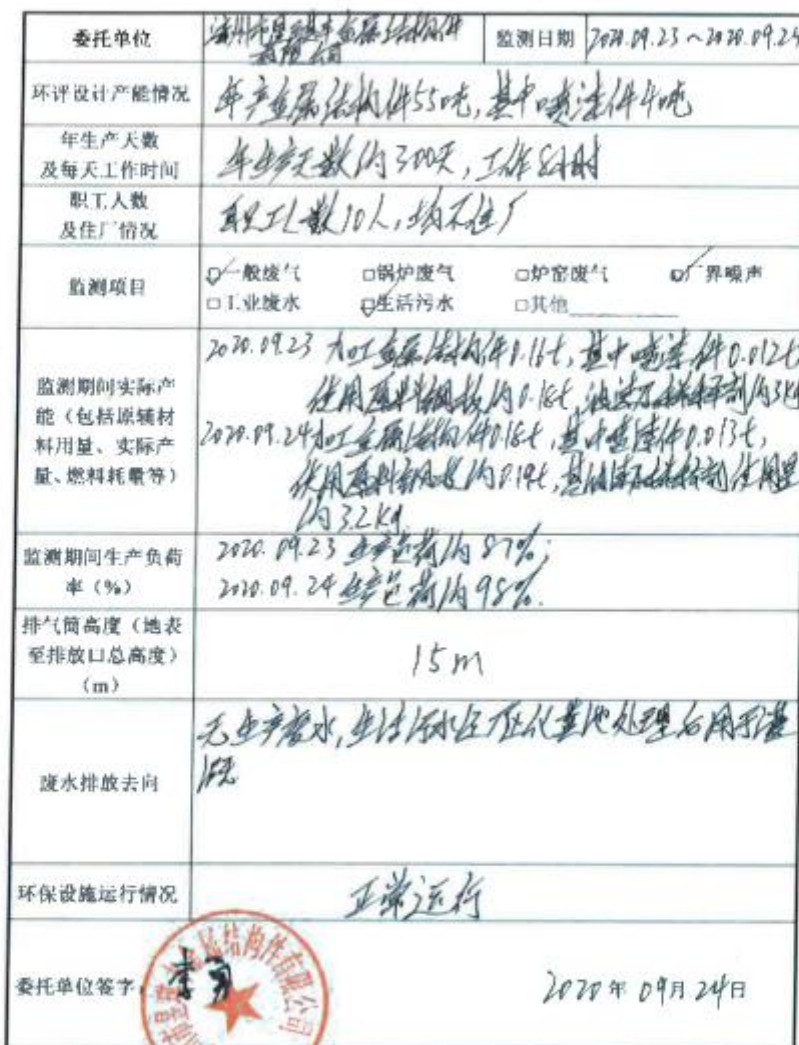 委托单位 市 金属结构件有限公司 监测日期 2020.09.23~2020.09.24
环评设计产能情况 年产金属结构件550吨,其中喷漆件40吨
年生产天数
及每天工作时间 年生产天数约300天,工作8小时
职工人数
及住厂情况 职工人数10人,均不住厂
监测项目 ☑一般废气 □锅炉废气 □炉窑废气 ☑厂界噪声
□工业废水 ☑生活污水 □其他
监测期间实际产
能(包括原辅材
料用量、实际产
量、燃料耗量等)
2020.09.23 加工金属结构件0.16t,其中喷漆件0.012t
使用原料钢板约0.18t,油漆及稀释剂约3kg
2020.09.24加工金属结构件0.18t,其中喷漆件0.013t,
使用原料钢板约0.19t,其油漆及稀释剂使用量
约3.2kg
监测期间生产负荷
率(%)
2020.09.23 生产负荷约87%;
2020.09.24 生产负荷约98%.
排气筒高度(地表
至排放口总高度)
(m)
15m
废水排放去向
无生产废水,生活污水经厂区化粪池处理后用于灌
溉
环保设施运行情况 正常运行
委托单位签字: 李 2020年09月24日
金属结构件有限公司